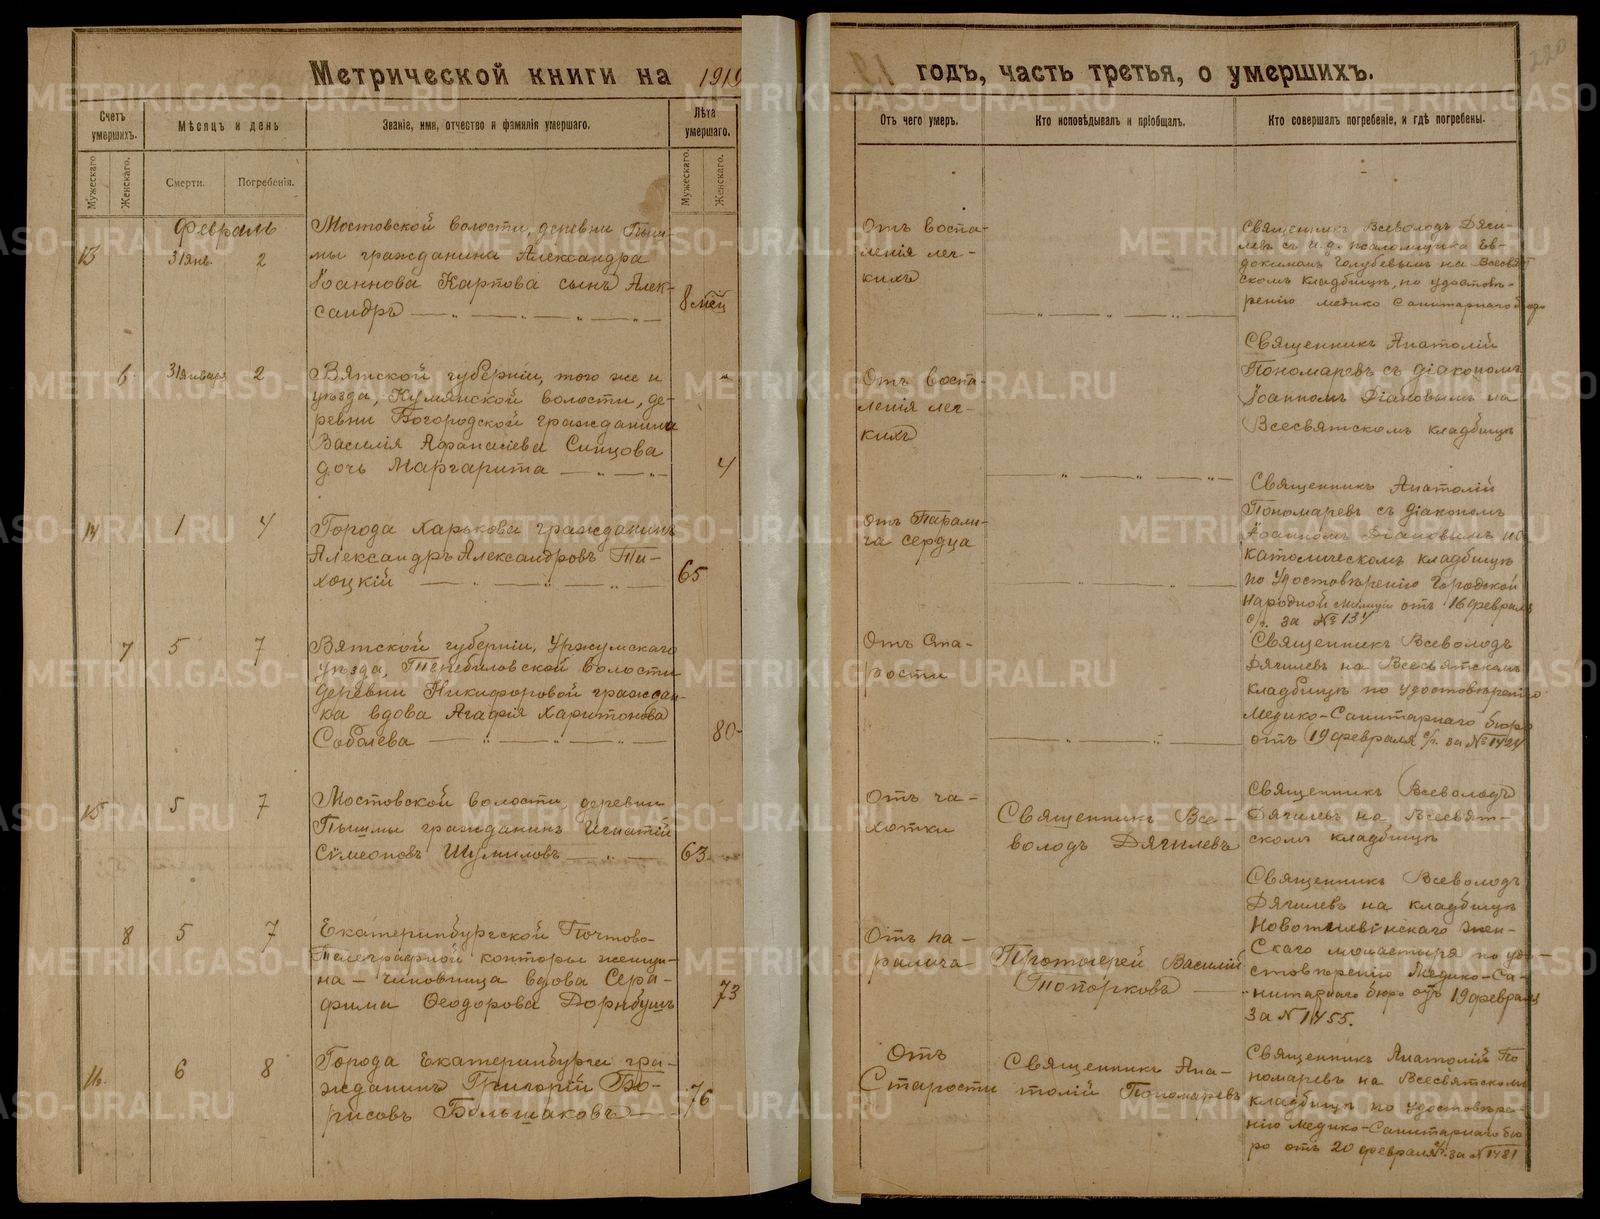 Метрической книги на 1919 годъ, часть третья, о умершихъ.
220
Счетъ умершихъ.
Мѣсяцъ и день
Званіе, имя, отчество и фамилія умершаго.
Лѣта умершаго.
Отъ чего умеръ.
Кто исповѣдывалъ и пріобщалъ.
Кто совершалъ погребеніе, и гдѣ погребены.
Мужескаго
Женскаго.
Смерти.
Погребенія.
Мужескаго.
Женскаго.
Февраль
13
31 янв.
2
Мостовской волости, деревни Пыш-
мы гражданина Александра
Іоаннова Карпова сынъ Алек-
сандръ
8 мец
Отъ воспа-
ленія лег-
кихъ
Священникъ Всеволодъ Дяги-
левъ с и.д. псаломщика Ев-
докимомъ Голубевымъ на Всесвят
скомъ кладбищѣ, по удостовѣ-
ренію медико санитарнаго бюро
6
31 января
2
Вятской губерніи, того же и
уѣзда, Кумянской волости, де-
ревни Богородской гражданина
Василія Афанасіева Сипцова
дочь Маргарита
4
Отъ воспа-
ленія лег-
кихъ
Священникъ Анатолій
Пономаревъ съ діакономъ
Іоанномъ Діановымъ на
Всесвятскомъ кладбищѣ
14
1
4
Города Харькова гражданинъ
Александръ Александровъ Ти-
хоцкій
65
Отъ Парали-
ча сердца
Священникъ Анатолій
Пономаревъ съ діакономъ
Іоанномъ Діановымъ на
католическомъ кладбищѣ
по удостовѣренію Городской
народной милиціи отъ 16 февраля
с/г. за № 134
7
5
7
Вятской губерніи, Уржумскаго
уѣзда, Теребиловской волости
деревни Никифоровой граждан-
ка вдова Агафія Харитонова
Соболева
80
Отъ Ста-
рости
Священникъ Всеволодъ
Дягилевъ на Всесвятскомъ
кладбищѣ по удостовѣренію
Медико-Санитарнаго бюро
отъ 19 февраля с/г. за № 1424
15
5
7
Мостовской волости, деревни
Пышмы гражданинъ Игнатій
Симеоновъ Шумиловъ
63
Отъ ча-
хотки
Священникъ Все-
володъ Дягилевъ
Священникъ Всеволодъ
Дягилевъ на Всесвят-
скомъ кладбищѣ
8
5
7
Екатеринбургской Почтово-
Телеграфной конторы женщи-
на - чиновница вдова Сера-
фима Ѳеодорова Дорнбушъ
73
Отъ па-
ралича
Протоіерей Василій
Топорковъ
Священникъ Всеволодъ
Дягилевъ на кладбищѣ
Новотихвинскаго жен-
скаго монастыря по удо-
стовѣренію Медико-Са-
нитарнаго бюро отъ 19 февраля
за № 1455.
16
6
8
Города Екатеринбурга гра-
жданинъ Григорій Бо-
рисовъ Большаковъ
76
Отъ
Старости
Священникъ Ана-
толій Пономаревъ
Священникъ Анатолій По
номаревъ на Всесвятскомъ
кладбищѣ по удостовѣре-
нію Медико-Санитарнаго бю
ро отъ 20 февраля с/г. за № 1481
METRIKI.GASO-URAL.RU